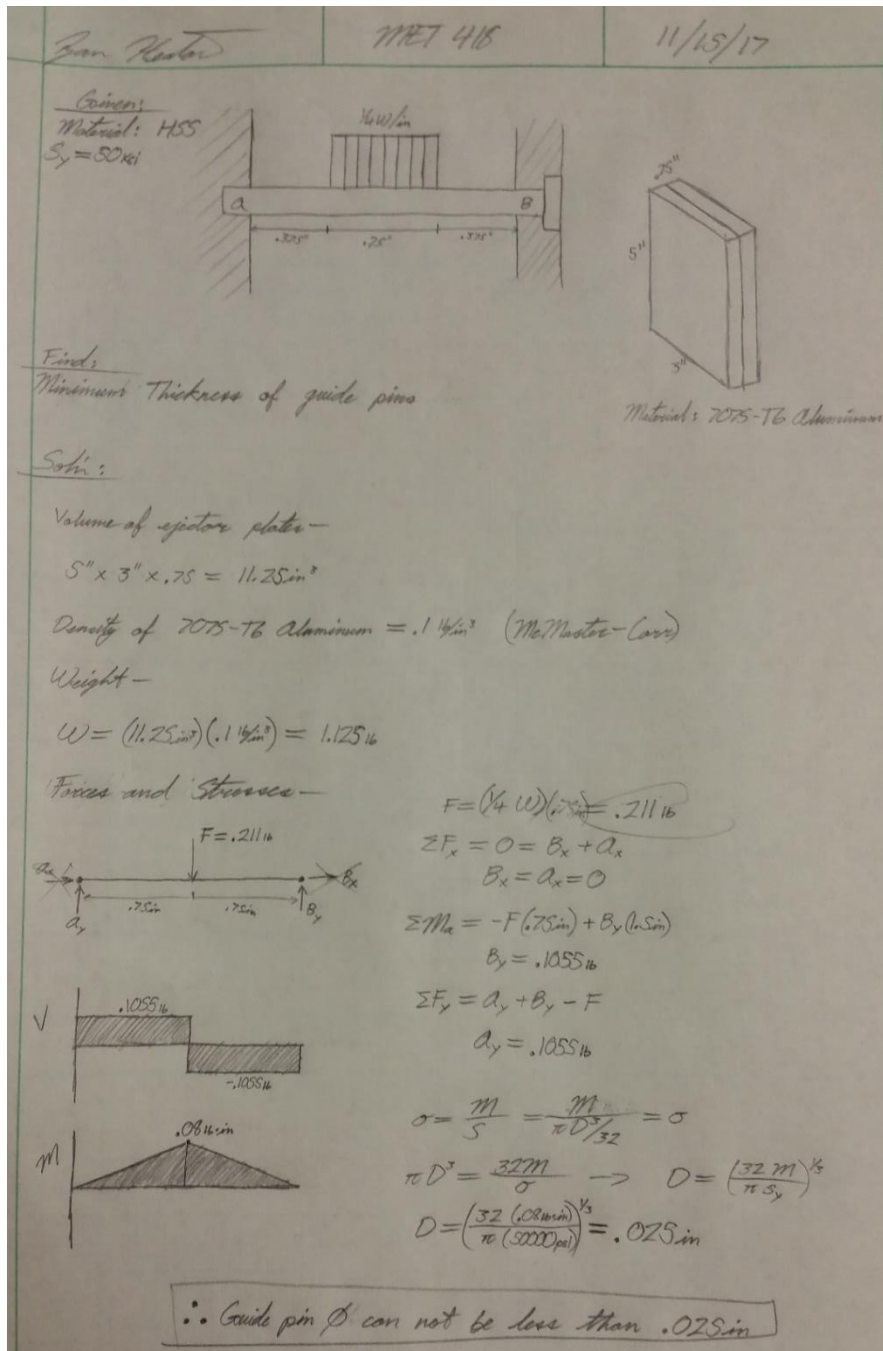 MET 418
11/15/17
Given:
Material: HSS
Sy = 50 ksi
1/4 W/in
A
B
.375"
.75"
.375"
.75"
5"
3"
Material: 7075-T6 Aluminum
Find:
Minimum Thickness of guide pins
Sol'n:
Volume of ejector plates—
5" x 3" x .75 = 11.25in³
Density of 7075-T6 Aluminum = .1 lb/in³ (McMaster-Carr)
Weight—
W = (11.25in³)(.1 lb/in³) = 1.125 lb
Forces and Stresses—
F = (1/4 W)(.75in) = .211 lb
ΣFx = 0 = Bx + Ax
Bx = Ax = 0
ΣMa = -F(.75in) + By(1.5in)
By = .1055 lb
ΣFy = Ay + By - F
Ay = .1055 lb
F = .211 lb
Ax
Bx
.75in
.75in
Ay
By
V
.1055 lb
-.1055 lb
M
.08 lb·in
σ = M/S = M/(πD³/32) = σ
πD³ = 32M/σ → D = (32 M/π Sy)^1/3
D = (32 (.08 lb·in)/π (50000 psi))^1/3 = .025 in
∴ Guide pin Ø can not be less than .025in